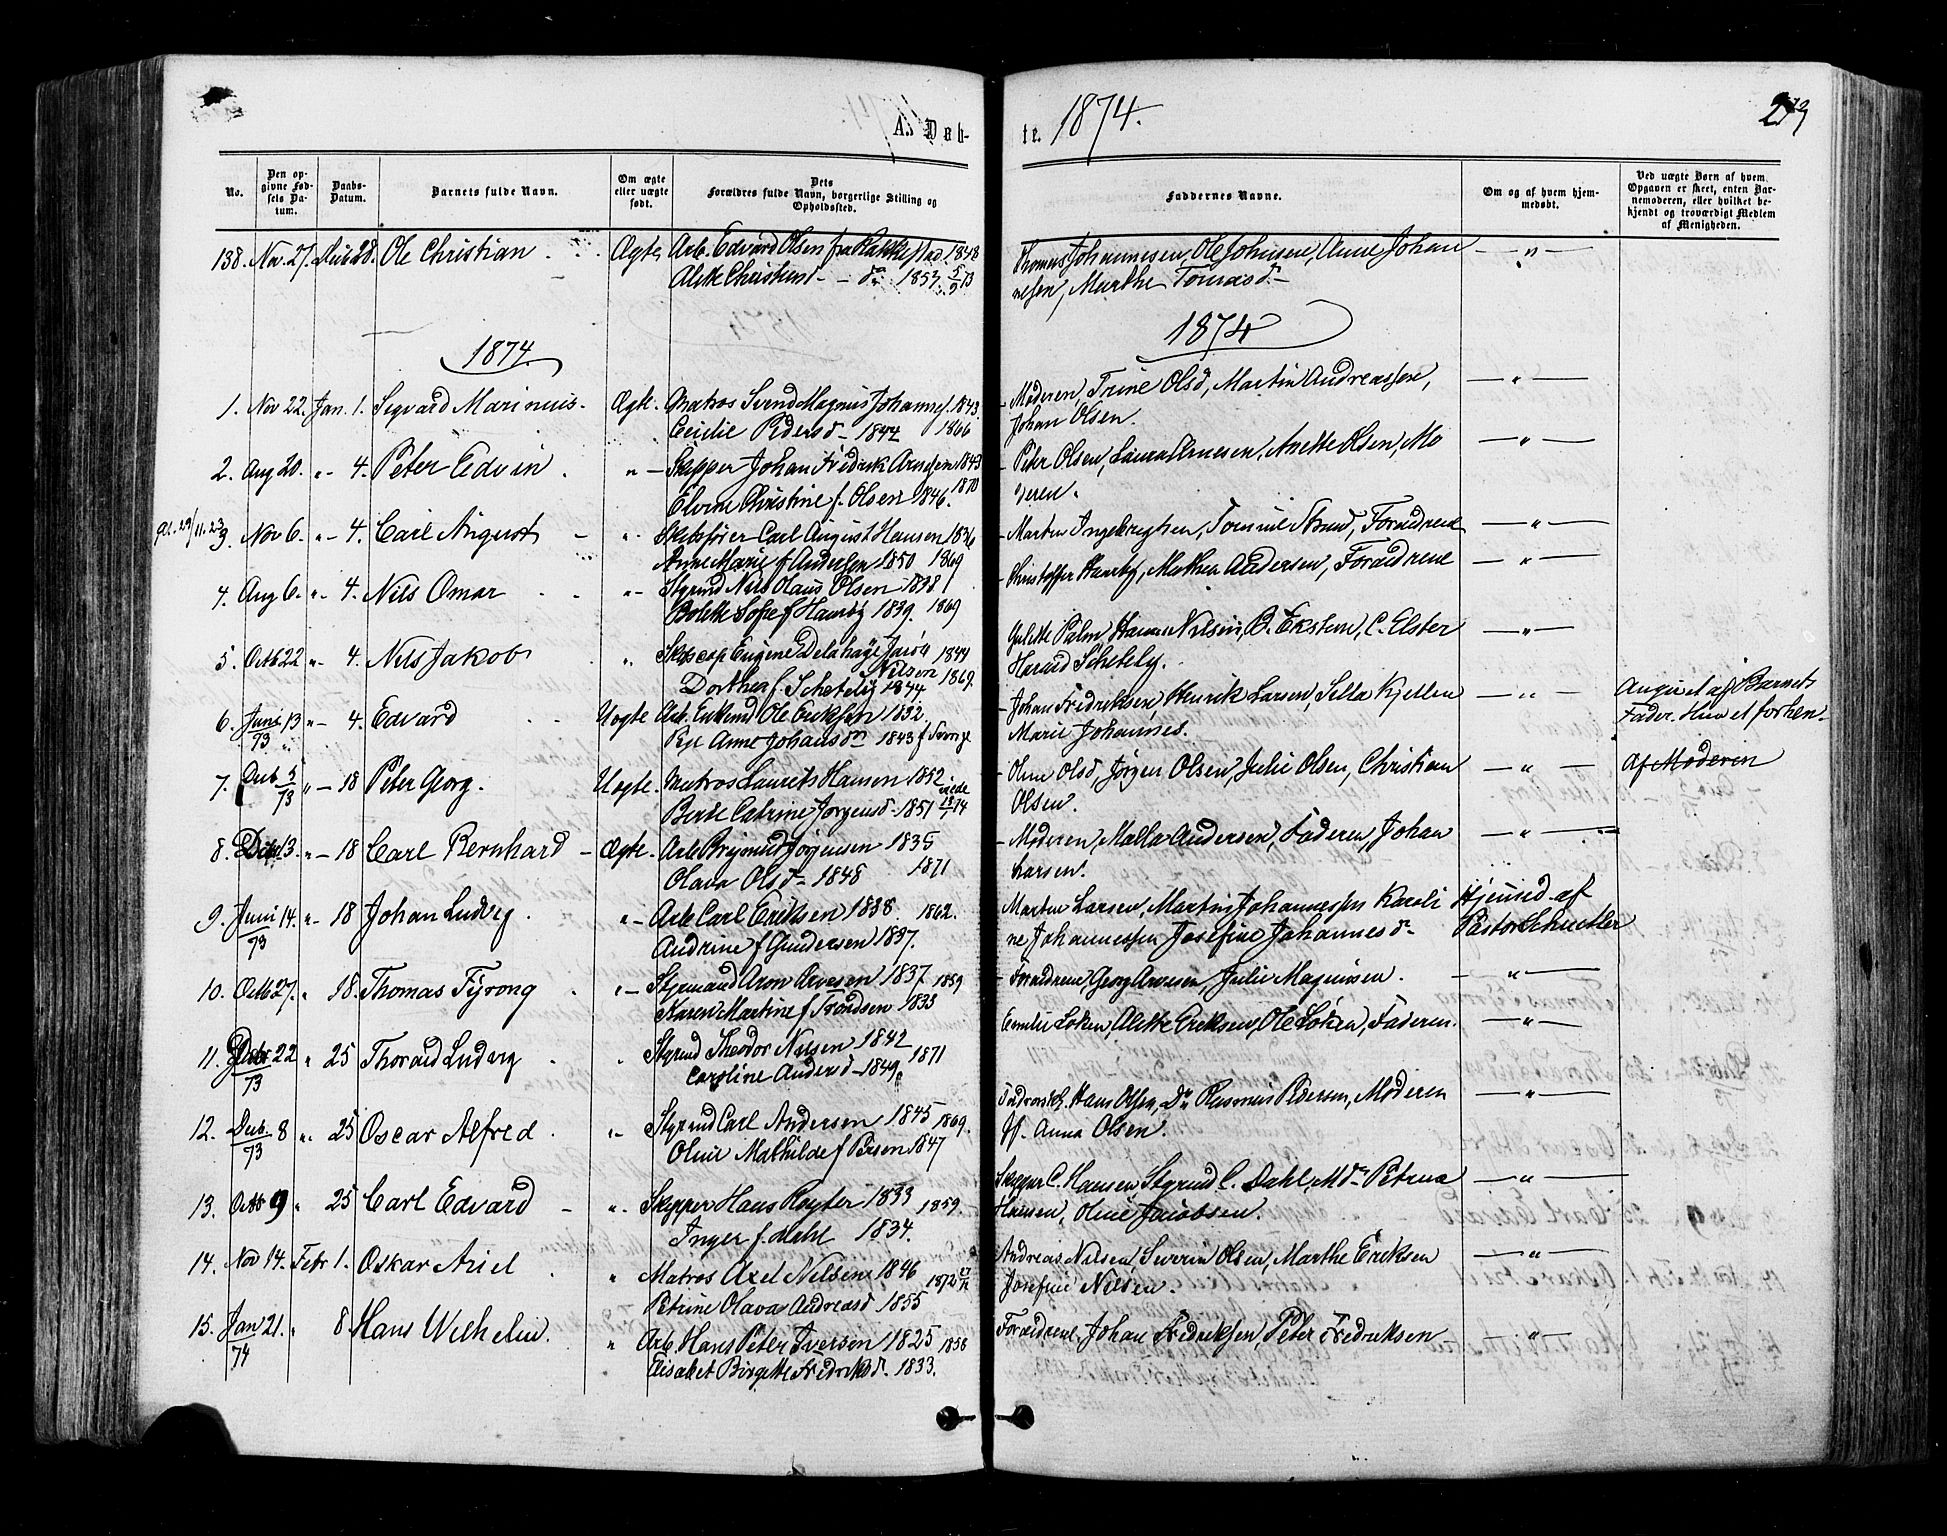 A. Døb-
te. 1874.
No.
Den opgivne Fødsels Datum.
Daabs-Datum.
Barnets fulde Navn.
Om ægte eller uægte født.
Dets Forældres fulde Navn, borgerlige Stilling og Opholdssted.
Faddernes Navne.
Om og af hvem hjemmedøbt.
Ved uægte Børn af hvem Opgaven er skeet, enten Barnemoderen, eller hvilket bekjendt og troværdigt Medlem af Menigheden.
138. Nov. 27. Dec 28. Ole Christian Ægte Arb. Edvard Olsen fra 1848
Alette Christensd - do 1853 5/9 73
Thomas Johannesen, Ole Johnsen, Anne Johan
nesen, Marthe Tomasd.
1874.
1874
1. Nov 22. Jan. 1. Sigvard Marinius. Ægte. Matros Svend Magnus Johannes. 1843.
Cecilie Pedersd - 1844 1866
Moderen, Trine Olsd, Martin Andreassen,
Johan Olsen.
2. Aug 20. " - 4. Peter Edvin " Skipper Johan Fredrik Arnesen 1843
Elvine Christine f. Olsen 1846. 1870
Peter Olsen, Laura Arnesen, Anette Olsen, Mo
deren.
3. Nov 6. " - 4. Carl August " Skibsfører Carl August Hansen 1836
Anne Marie f Andersen 1850 1869
Morten Ingebregtsen, Tomine Strand, Forældrene
4. Aug 6. " - 4. Nils Omar " Styrmd Nils Olaus Olsen 1838.
Bolette Sofie f 1839. 1869
Christoffer Mathea Andersen, Forældrene
5. Octb 22 " - 4. Nils Jakob " Skibscap Eugene Delahage Jarön Nilsen 1844
Dorthea f. Schetelig 1844 1869.
Gulette Palm Hanna Nilsen, B. Eksten, C. Elster
Harald Schetelig.
6. Juni 13 /73 " - 4. Edvard Uægte Arb. Enkemd Ole Eriksen 1832
Pge Anne Johansdn 1843 f Sverige
Johan Fredriksen, Henrik Larsen, Sella Kjellen
Marie Johannes.
Angivet af Barnets
Fader. Hun et forhen.
7. Decb 5/73 " - 18 Peter Georg. Uægte. Matros Laurits Hansen 1852
Berte Catrine Jørgensd - 1851
Oline Olsd, Jørgen Olsen, Julie Olsen, Christian
Olsen.
Af Moderen
8. Dcbr 13. " - 18 Carl Bernhard - Ægte. Arb Jørgensen 1835
Olava Olsd - 1848 1871
Moderen, Malla Andersen, Faderen, Johan
Larsen.
9. Juni 14. /73 " - 18 Johan Ludvig. " - Arb Carl Eriksen 1838 1862.
Andrine f Gundersen 1837.
Martin Larsen, Martin Johannessen Karoli
ne Johannessen Josefine Johannesd -
Hjemmed af
Pastor
10. Octb 27. " 18. Thomas Fyrong " - Styrmand Aron Arvesen 1837 1859
Karen Martine f Trondsen 1833
Forældrene, Georg Arvesen, Julie Magnusen.
11. Dcbr 22 /73 " 25 Thorald Ludvig " Styrmd Theodor Nilsen 1842
Caroline Andersd - 1849. 1871
Emilie Løken, Alette Eriksen, Ole Løken, Faderen.
12. Decb. 8 /73 " 25 Oscar Alfred. " - Styrmd Carl Andersen 1845 1869.
Oline Mathilde f 1847
Hans Olsen, Do Rasmus Pedersen, Moderen
Jf. Anna Olsen.
13. Octb 9 " 25 Carl Edvard - " Skipper Hans Røyter 1833 1859
Inger f. Dahl 1834.
Skipper C. Hansen Styrmd C. Dahl, Md Petrea
Hansen, Oline Jacobsen.
14. Nov 14. Febr 1. Oskar Ariel " Matros Axel Nilsen 1846 1872
Petrine Olava Andreasd 1855
Andreas Nilsen, Severin Olsen, Marthe Eriksen
Josefine Nilsen.
15. Jan 21. /74 " 8 Hans Wilhelm. " Arb. Hans Peter Iversen 1825 1858
Elisabet Birgitte Fredriksd. 1833.
Forældrene, Johan Fredriksen, Peter Fredriksen